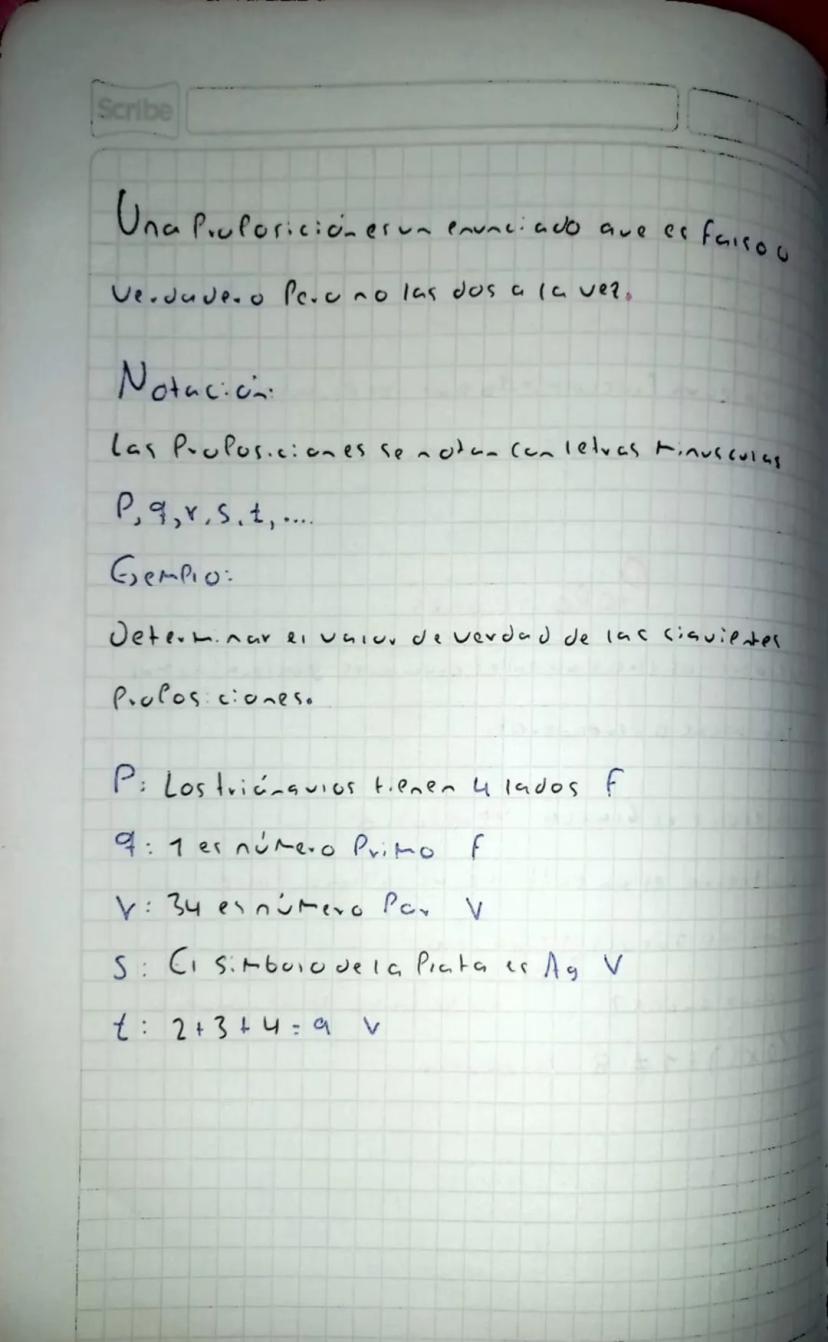 Scribe
Una Proposición es un enunciado que es falso o
Verdadero Pero no las dos a la vez.
Notación:
Las Proposiciones se notan con letras minusculas
P, q, r, s, t, ....
Ejemplo:
Determinar el valor de verdad de las siguientes
Proposiciones.
P: Los triángulos tienen 4 lados F
q: 1 es número Primo F
r: 34 es número Par V
S: El simbolo de la Plata es Ag V
t: 2+3+4=9 V